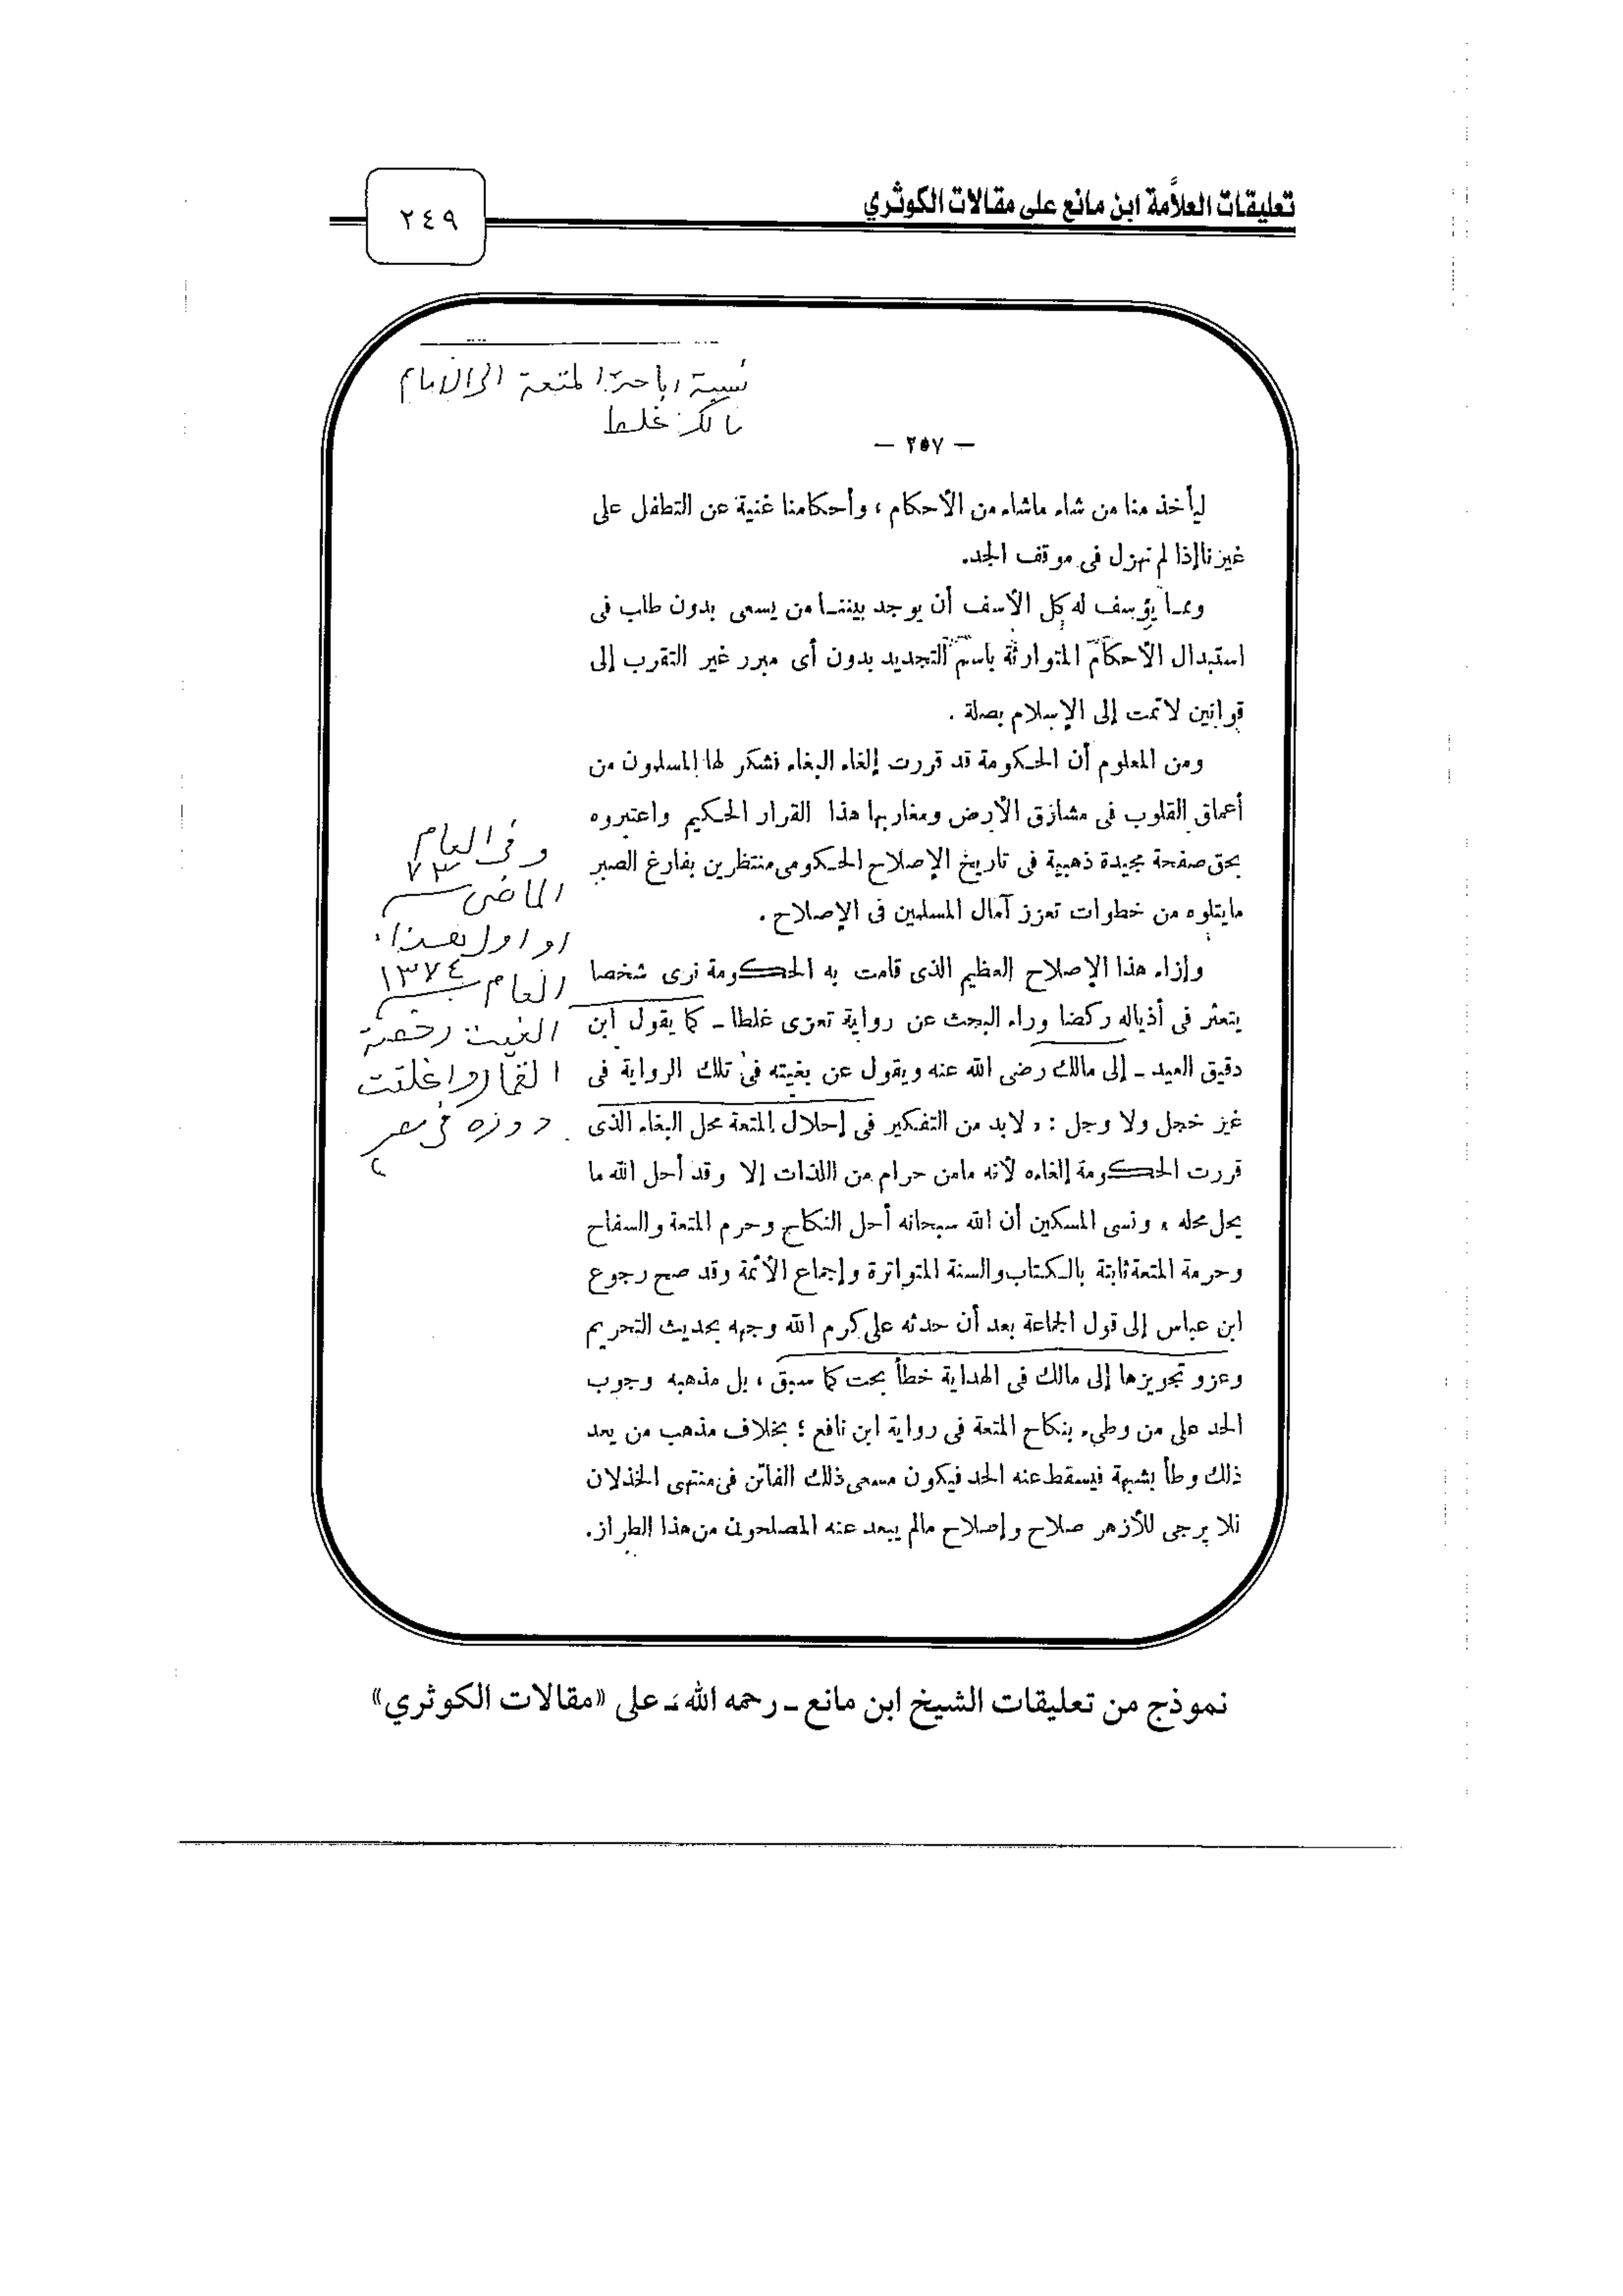 تعليقات العلاَّمة ابن مانع على مقالات الكوثري
٢٤٩
نسبة إباحة المتعة الى الامام
مالك غلط
— ٢٥٧ —
ليأخذ منا من شاء ماشاء من الأحكام ، وأحكامنا غنية عن التطفل على
غيرنا إذا لم نهزل فى موقف الجد.
ومما يؤسف له كل الأسف أن يوجد بيننا من يسعى بدون طلب فى
استبدال الأحكام المتوارثة باسم التجديد بدون أى مبرر غير التقرب إلى
قوانين لاتمت إلى الإسلام بصلة .
ومن المعلوم أن الحكومة قد قررت إلغاء البغاء فشكر لها المسلمون من
أعماق القلوب فى مشارق الأرض ومغاربها هذا القرار الحكيم واعتبروه
بحق صفحة مجيدة ذهبية فى تاريخ الإصلاح الحكومى منتظرين بفارغ الصبر
مايتلوه من خطوات تعزز آمال المسلمين فى الإصلاح .
وإزاء هذا الإصلاح العظيم الذى قامت به الحكومة نرى شخصا
يتعثر فى أذياله ركضا وراء البحث عن رواية تعزى غلطا ـ كما يقول ابن
دقيق العيد ـ إلى مالك رضى الله عنه ويقول عن بغيته فى تلك الرواية فى
غير خجل ولا وجل : « لابد من التفكير فى إحلال المتعة محل البغاء الذى
قررت الحكومة إلغاءه لأنه مامن حرام من اللذات إلا وقد أحل الله ما
يحل محله » ونسى المسكين أن الله سبحانه أحل النكاح وحرم المتعة والسفاح
وحرمة المتعة ثابتة بالكتاب والسنة المتواترة وإجماع الأئمة وقد صح رجوع
ابن عباس إلى قول الجماعة بعد أن حدثه على كرم الله وجهه بحديث التحريم
وعزو تجويزها إلى مالك فى الهداية خطأ بحت كما سبق ، بل مذهبه وجوب
الحد على من وطىء بنكاح المتعة فى رواية ابن نافع ؛ بخلاف مذهب من يعد
ذلك وطأ بشبهة فيسقط عنه الحد فيكون مسعى ذلك الفاتن فى منتهى الخذلان
فلا يرجى للأزهر صلاح وإصلاح مالم يبعد عنه المصلحون من هذا الطراز.
وفى العام
٧٣
الماضى
او اول هذا
العام ١٣٧٤
الغيت رخصة
القمار واغلقت
دوره فى مصر
نموذج من تعليقات الشيخ ابن مانع ـ رحمه الله ـ على «مقالات الكوثري»